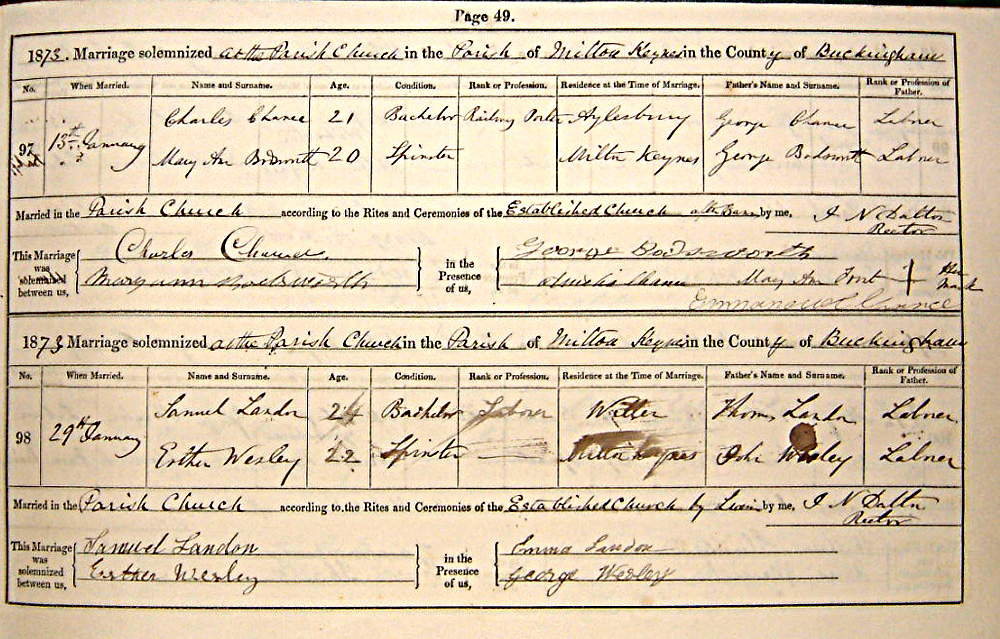 Page 49.
1873. Marriage solemnized at the Parish Church in the Parish of Milton Keynes in the County of Buckingham
No. When Married. Name and Surname. Age. Condition. Rank or Profession. Residence at the Time of Marriage. Father's Name and Surname. Rank or Profession of Father.
97 13th January Charles Chance 21 Bachelor Railway Porter Aylesbury George Chance Labner
Mary Ann Bodsworth 20 Spinster Milton Keynes George Bodsworth Labner
Married in the Parish Church according to the Rites and Ceremonies of the Established Church after Banns by me, J N Dalton
Rector
This Marriage was solemnized between us, Charles Chance. in the Presence of us, George Bodsworth
Mary ann Bodsworth Mary Ann Font + Her Mark
Emmanuel Chance
1873 Marriage solemnized at the Parish Church in the Parish of Milton Keynes in the County of Buckingham
No. When Married. Name and Surname. Age. Condition. Rank or Profession. Residence at the Time of Marriage. Father's Name and Surname. Rank or Profession of Father.
98 29th January Samuel Landon 24 Bachelor Labner Thomas Landon Labner
Esther Wesley 22 Spinster Milton Keynes John Wesley Labner
Married in the Parish Church according to the Rites and Ceremonies of the Established Church by by me, J N Dalton
Rector
This Marriage was solemnized between us, Samuel Landon in the Presence of us, Emma Landon
Esther Wesley George Wesley